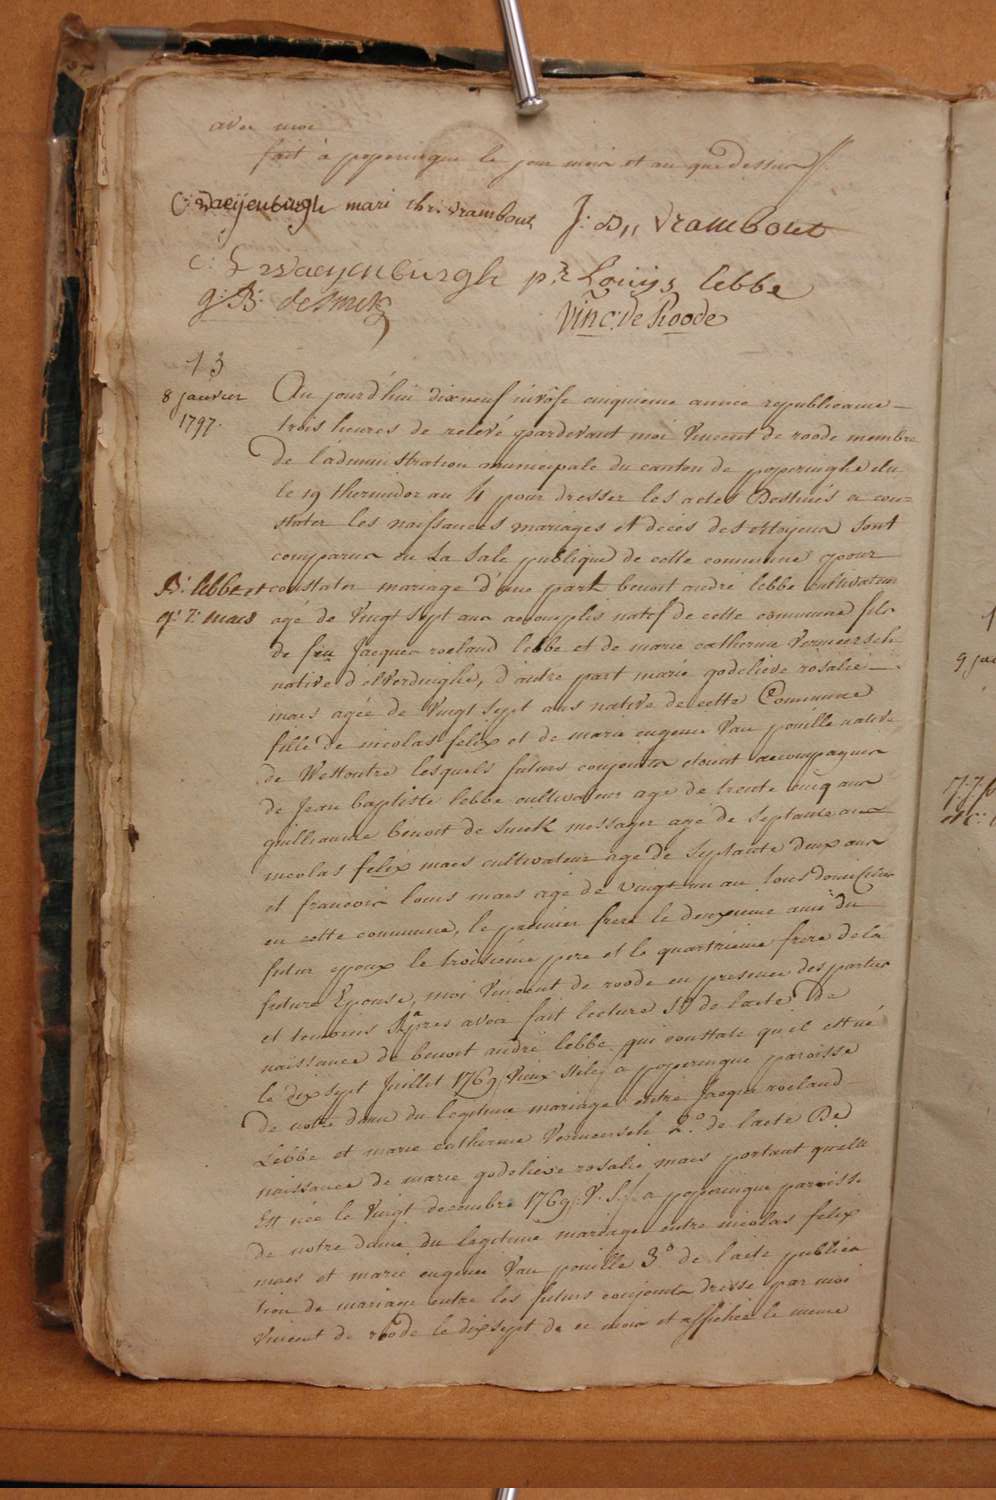 avec moi
fait à poperingue le jour mois et an que dessus
C: waeijenburgh mari chr: vrambout J: B,, vrambout
C: F waeyenburgh p:re Louijs lebbe
g: B: desmeth
Vinc: de Roode
13
8 janvier
1797.
Au jourd'hui dixneuf nivôse cinquieme année republicaine
trois heures de relévé pardevant moi Vincent de roode membre
de l'administration municipale du canton de poperinghe elu
le 19 thermidor an 4 pour dresser les actes Destinés a con=
stater les naissances mariages et décès des citoyens sont
comparus en La Sale publique de cette commune pour
B: lebbe et
g: r: maes
constater mariage d'une part benoit andré lebbe cultivateur
agé de Vingt sept ans accomplis natif de cette commune fils
de feu Jacques roeland lebbe et de marie catherine Vermeersch
native d'elverdinghe, d'autre part marie godelieve rosalie
maes agée de Vingt sept ans native de cette Commune
fille de nicolas felix et de marie eugenie Van pouille native
de Westoutre lesquels futurs conjoints etoient accompagnés
de Jean baptiste lebbe cultivateur agé de trente cinq ans
guilliaume benoit de smeth messager agé de septante ans
nicolas felix maes cultivateur agé de septante deux ans
et francois louis maes agé de vingt-un an tous domiciliés
en cette commune, le premier frere le deuxieme ami du
futur epoux le troisiéme pere et le quatriéme frere de la
future Epouse, moi Vincent de roode en presence des parties
et temoins Apres avoir fait lecture 1° de lacte de
naissance de benoit andré lebbe qui constate qu'il est né
le dix sept Juillet 1769 Vieux stile a poperingue paroisse
de notre dame du legitime mariage entre Jacques roeland
Lebbe et marie catherine Vermeersch 2.° de lacte de
naissance de marie godelieve rosalie maes portant quelle
Est née le Vingt decembre 1769 V. S. a poperingue paroisse
de notre dame du legitime mariage entre nicolas felix
maes et marie eugenie Van pouille 3° de lacte publica
tion de mariage entre les futurs conjoints dressé par moi
Vincent de roode le dixsept de ce mois et affichée le meme
9 ja